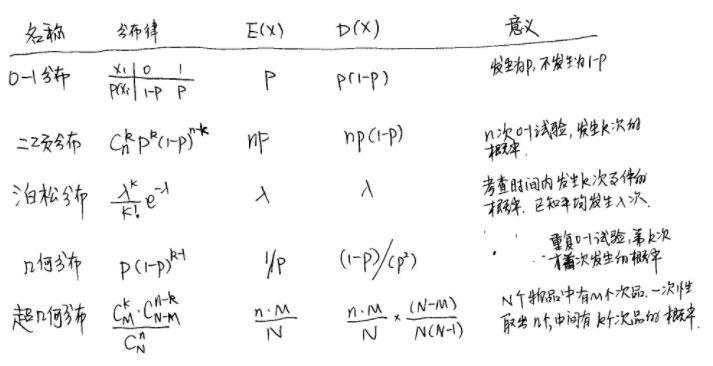 名称 分布律 E(X) D(X) 意义
0-1分布 X₁ 0 1 P(X₁ 1-p p P p(1-p) 发生为p,不发生为1-p
二项分布 Cₙᵏ pᵏ(1-p)ⁿ⁻ᵏ np np(1-p) n次0-1试验,发生k次的
概率.
泊松分布 λᵏ/k! e^-λ λ λ 考查时间内发生k次事件的
概率.已知平均发生λ次.
几何分布 p(1-p)ᵏ⁻¹ 1/p (1-p)/(p²) 重复0-1试验,第k次
才首次发生的概率
超几何分布 C_M^k · C_{N-M}^{n-k} / C_N^n n·M/N n·M/N × (N-M)/N(N-1) N个物品中有M个次品.一次性
取出n个,中间有k个次品的概率.